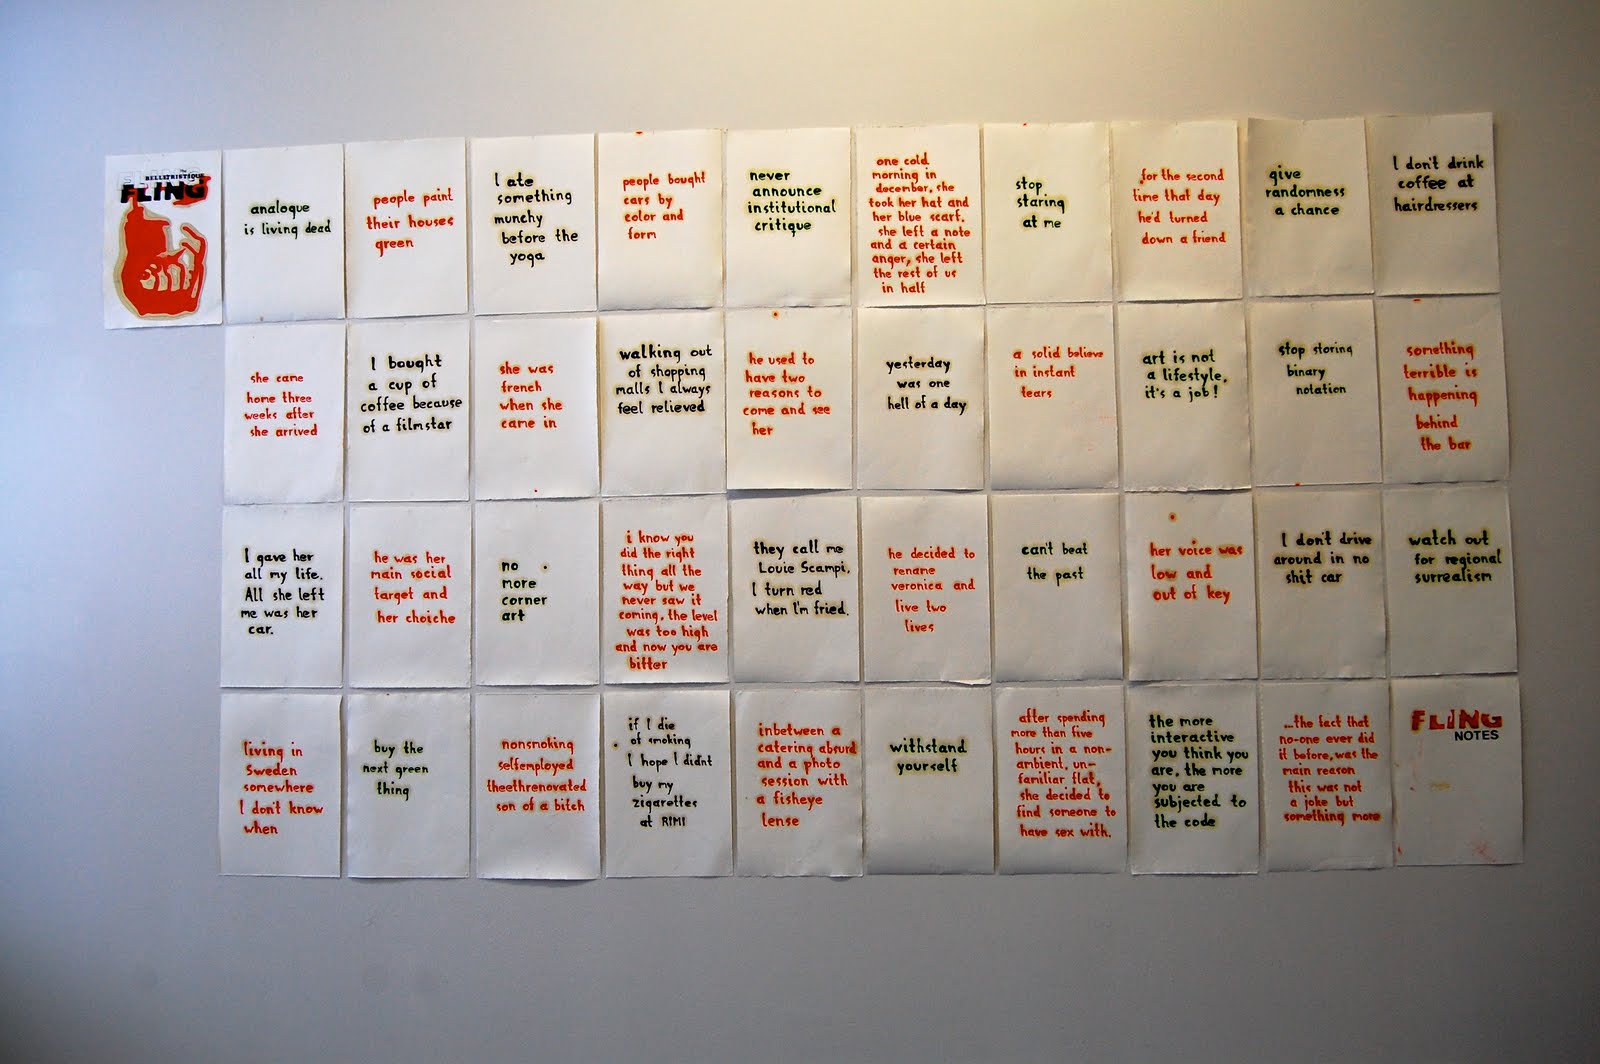 THE
BELLETRISTSQUE
FLING
analogue
is living dead
people paint
their houses
green
I ate
something
munchy
before the
yoga
people bought
cars by
color and
form
never
announce
institutional
critique
one cold
morning in
december, she
took her hat and
her blue scarf.
she left a note
and a certain
anger, she left
the rest of us
in half
stop
staring
at me
for the second
time that day
he'd turned
down a friend
give
randomness
a chance
I don't drink
coffee at
hairdressers
she came
home three
weeks after
she arrived
I bought
a cup of
coffee because
of a filmstar
she was
french
when she
came in
walking out
of shopping
malls I always
feel relieved
he used to
have two
reasons to
come and see
her
yesterday
was one
hell of a day
a solid believe
in instant
tears
art is not
a lifestyle,
it's a job!
stop storing
binary
notation
something
terrible is
happening
behind
the bar
I gave her
all my life.
All she left
me was her
car.
he was her
main social
target and
her choiche
no
more
corner
art
i know you
did the right
thing all the
way but we
never saw it
coming, the level
was too high
and now you are
bitter
they call me
Louie Scampi,
I turn red
when I'm fried.
he decided to
rename
veronica and
live two
lives
can't beat
the past
her voice was
low and
out of key
I don't drive
around in no
shit car
watch out
for regional
surrealism
living in
Sweden
somewhere
I don't know
when
buy the
next green
thing
nonsmoking
selfemployed
theethrenovated
son of a bitch
if I die
of smoking
I hope I didn't
buy my
zigarettes
at RIMI
inbetween a
catering absurd
and a photo
session with
a fisheye
lense
withstand
yourself
after spending
more than five
hours in a non-
ambient, un-
familiar flat,
she decided to
find someone to
have sex with.
the more
interactive
you think you
are, the more
you are
subjected to
the code
...the fact that
no-one ever did
it before, was the
main reason
this was not
a joke but
something more
FLING
NOTES